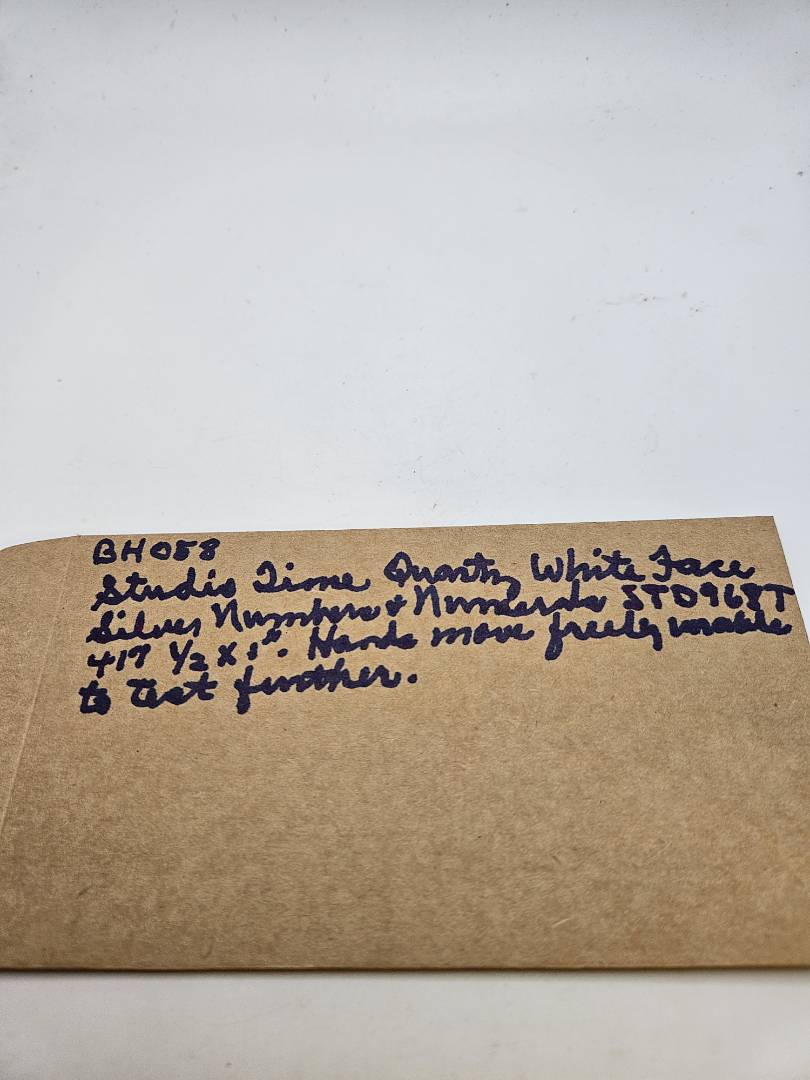 BH058
Studio Time Quartz White Face
Silver Numbers & Numerals STD968T
417 1/2 x 1". Hands move freely unable
to test further.